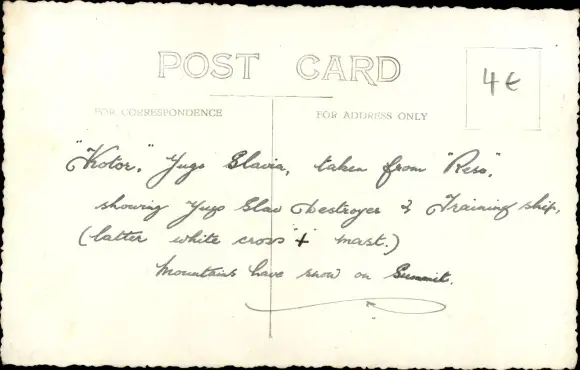 POST CARD
4 €
FOR CORRESPONDENCE
FOR ADDRESS ONLY
"Kotor," Yugo Slavia, taken from "Reso",
showing Yugo Slav Destroyer & Training ship,
(latter white cross "+" mast.)
Mountains have snow on Summit.